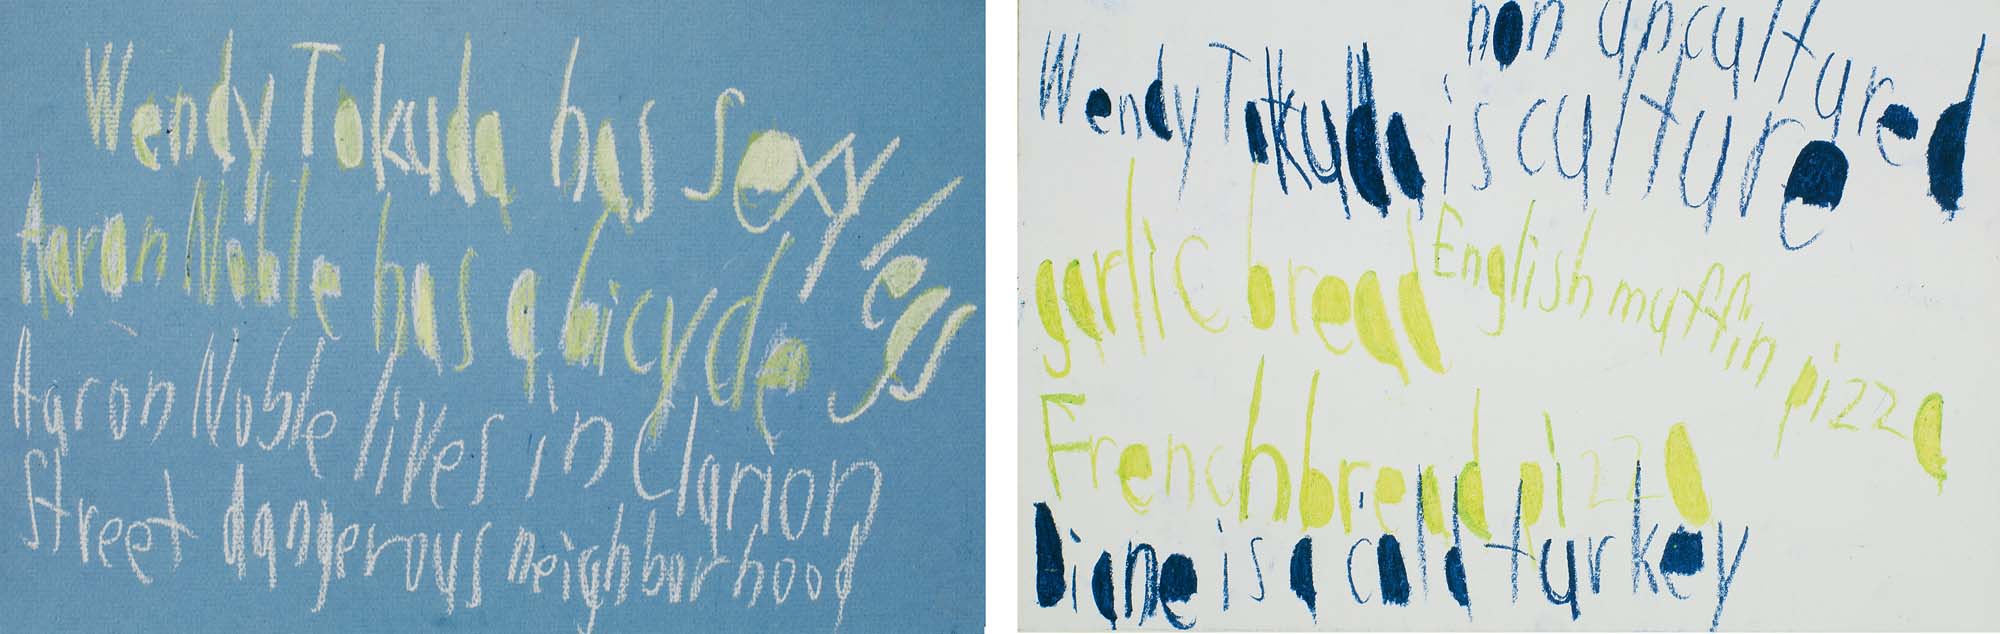 Wendy Tokuda has sexy legs
Aaron Noble has a bicycle
Aaron Noble lives in Clarion
Street dangerous neighborhood
non uncultured
Wendy Tokuda is culture
garlic bread English muffin pizza
French bread pizza
Diane is a cold turkey